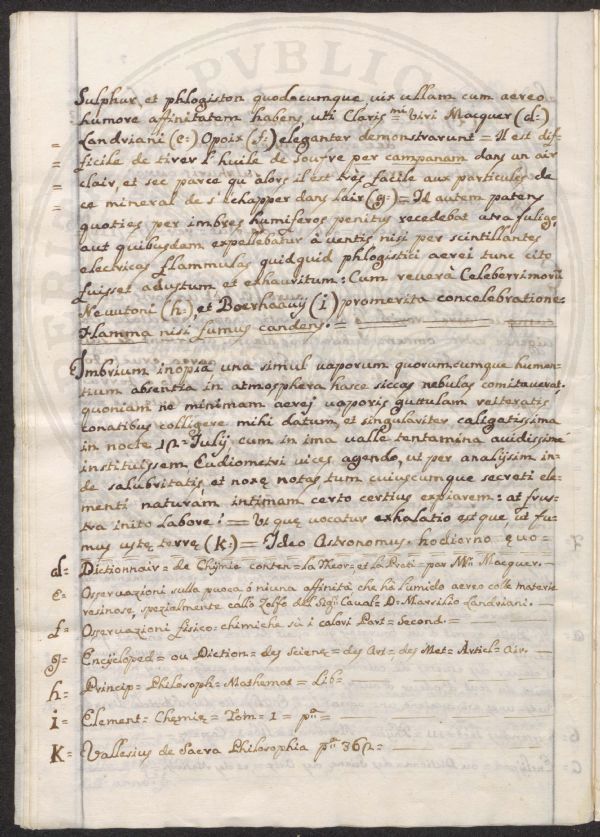 Sulphur, et phlogiston quodcumque, vix ullam cum aereo
humore affinitatem habens, uti Claris=mi Viri Macquer (d:)
Landriani (e:) Opoix (f:) eleganter demonstrarunt = Il est dif-
= ficile de tirer l'huile de soufre per campanam dans un air
= clair, et sec parce qu'alors il est très facile aux particules de
= ce mineral de s'echapper dans l'air (g:) = Id autem patens
quoties per imbres humiferos penitus recedebat atra fuligo,
aut quibusdam expellebatur à ventis nisi per scintillantes
electricas flammulas quidquid phlogistici aerei tunc cito
fuisset adustum et exhauritum: Cum reverà Celeberrimorũ
Nevvutoni (h:), et Boerhaavij (i) promerita concelebratione
Flamma nisi fumus candens. =
Imbrium inopia una simul vaporum quorumcumque humen-
tium absentia in atmosphera hasce siccas nebulas comitaverat,
quoniam ne minimam aerej vaporis guttulam reiteratis
conatibus colligere mihi datum, et singulariter caligatissima
in nocte 12= Julij cum in ima valle tentamina avidissimè
instituissem Eudiometri vices agendo, ut per analijsim in-
de salubritatis, et noxę notas, tum cuiuscumque secreti ele-
menti naturam intimam certo certius expiarem: at frus-
tra inito labore! = Ut quę vocatur exhalatio est que, ut fu-
mus ustę terrę (k:) = Ideo Astronomus hodierno ęuo=
d= Dictionnair = de Chijmie conten = la Theor = et la Prati = par Mr. Macquer. —
e= Osservazioni sulla poca ò niuna affinità che hà l'umido aereo colle materie
resinose, spezialmente collo Zolfo del Sigr. Caval= D= Marsilio Landriani. —
f= Osservazioni fisico = chimiche sù i calori Part = Second. =
g= Encycloped = ou Diction = des Scienç = des Art = des Met = Articl = Air. —
h= Princip = Philosoph = Mathemat = Lib=
i= Element = Chemię = Tom = 1 = pa =
K= Vallesius de Sacra Philosophia pa 362 =